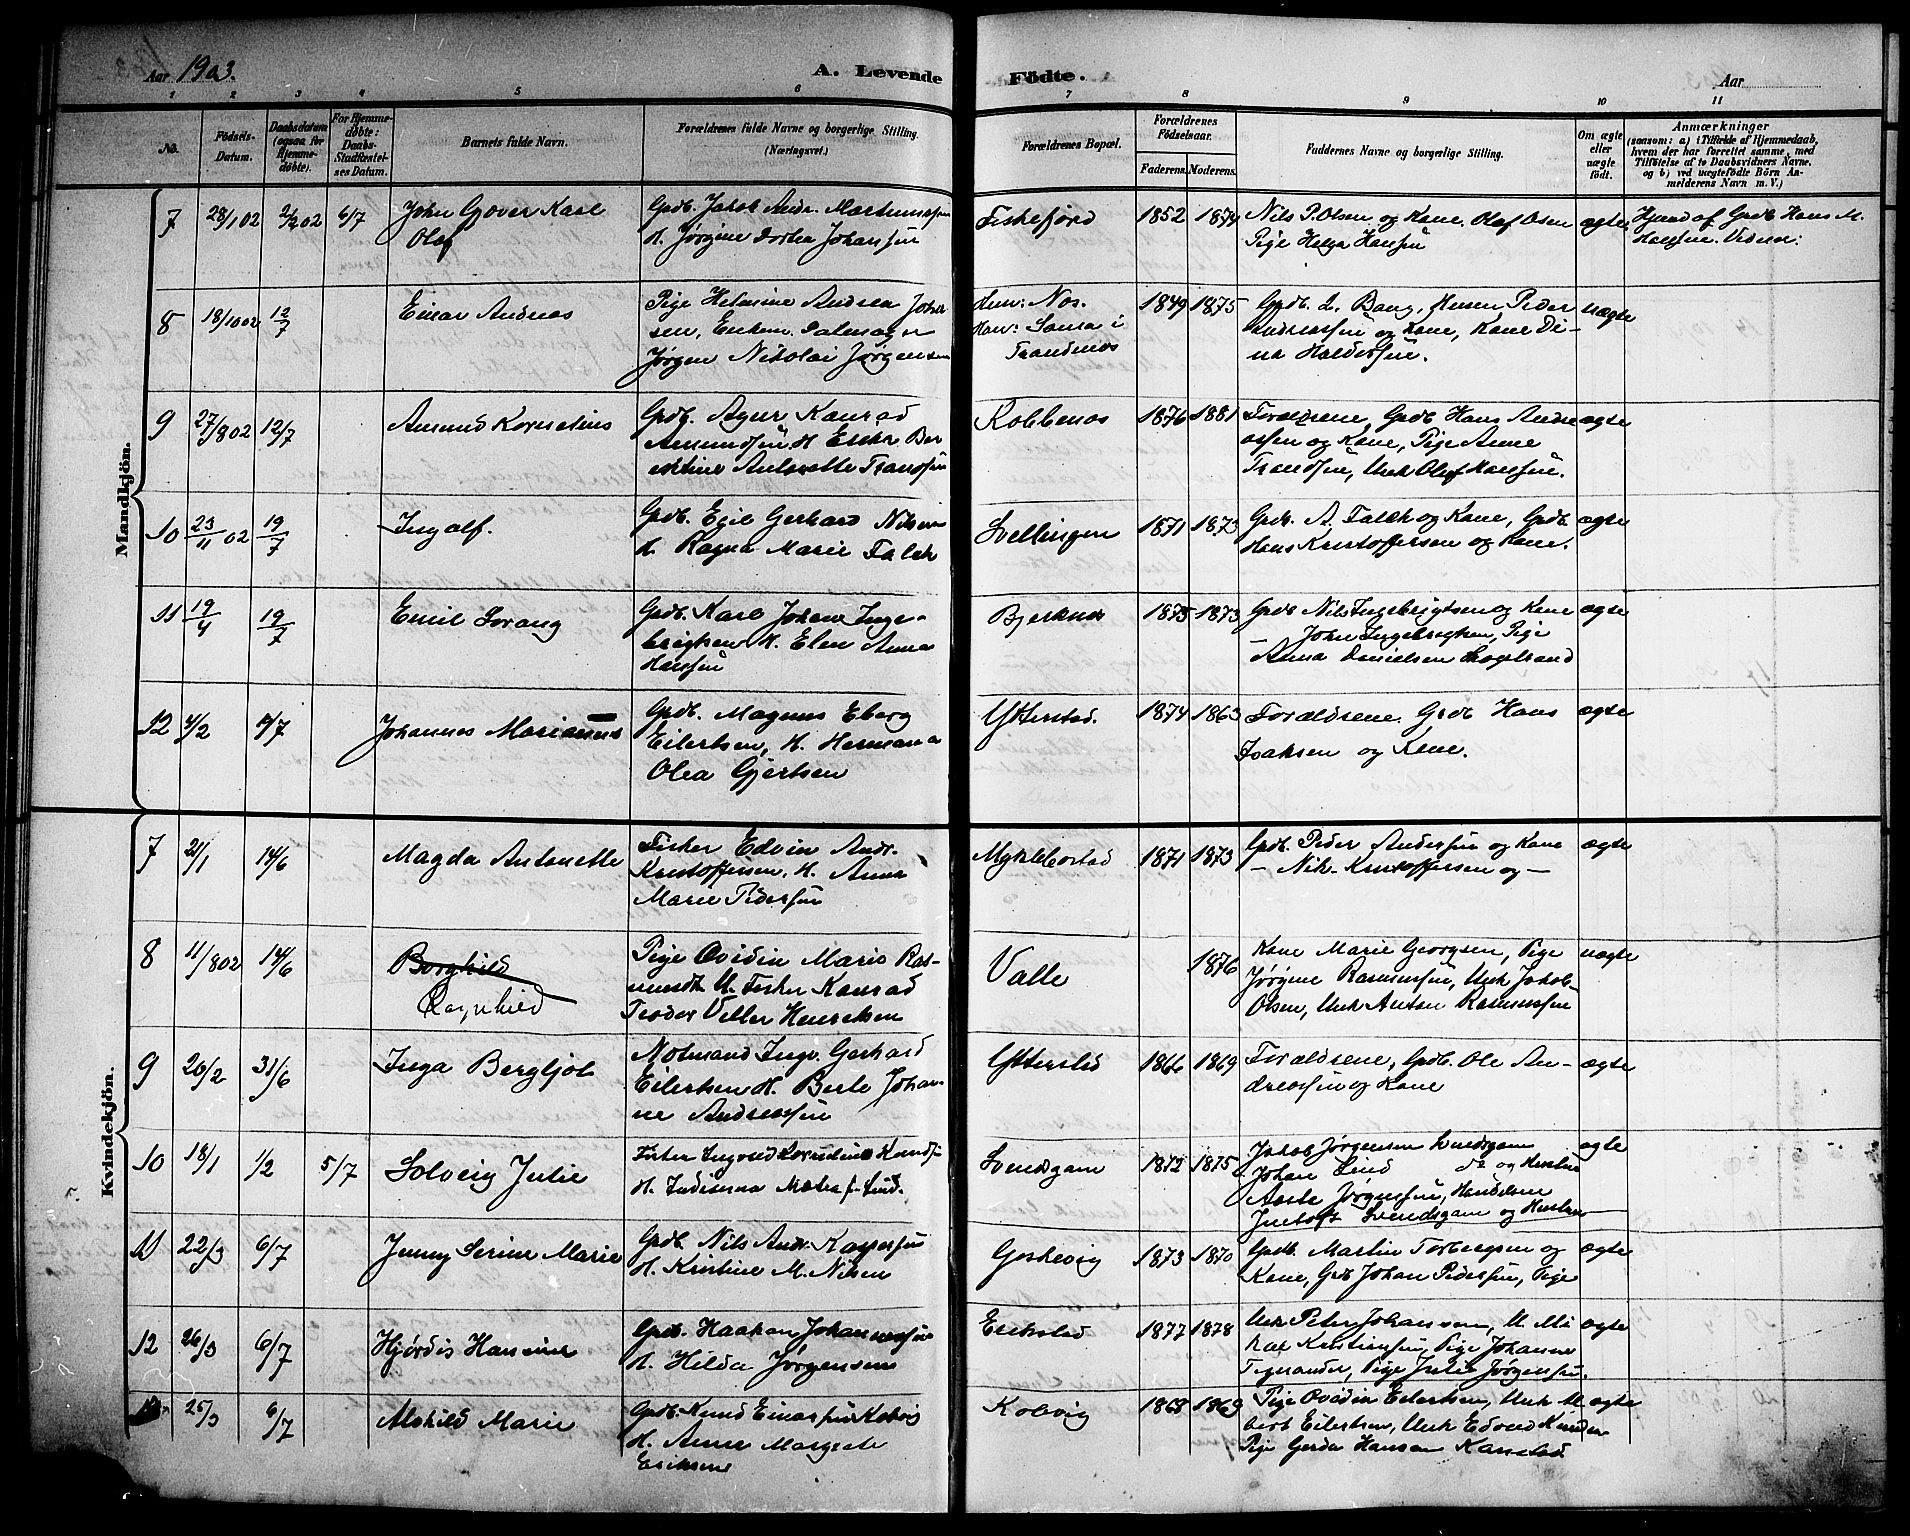 Aar 1903.
A. Levende Födte.
Aar
1 2 3 4 5 6 7 8 9 10 11
No.
Födsels-Datum.
Daabsdatum (ogsaa for Hjemmedöbte).
For Hjemmedøbte: Daabs-Stadfæstelses Datum.
Barnets fulde Navn.
Forældrenes fulde Navne og borgerlige Stilling.
(Næringsvei.)
Forældrenes Bopæl.
Forældrenes Födselsaar.
Faderens. Moderens.
Faddernes Navne og borgerlige Stilling.
Om ægte eller uægte födt.
Anmærkninger
(saasom: a) i Tilfælde af Hjemmedaab,
hvem der har forrettet samme, med
Tilföielse af to Daabsvidners Navne.
og b) ved uægtefödte Börn An-
melderens Navn m. V.)
Mandkjön.
7 28/1 02 2/2 02 6/7 John Gover Karl
Olaf
Grdb. Jakob Andr. Martinussen
H. Jørgine Dortea Johansen
Fiskefjord 1852 1854
Nils P. Olsen og Kone. Olaf Olsen
Pige Helga Hansen
ægte
Hjmd af Grdb Hans M.
8 18/10 02 12/7 Einar Andreas
Pige Helmine Andrea Johan
sen, Enkem.
Jørgen Nikolai Jørgensen
Hun: Nos.
Han: Sama i
Trandenes
1849 1875
Grdb. L. Bang, Peder
Andreassen og Kone, Kone Di-
na
uægte
9 27/8 02 12/7 Amund Kornelius
Grdb. Agur Konrad
Amundsen H. Ester Ber
Antonette Trandsen
Kobbenes 1876 1881
Forældrene, Grdb Hans Andre
assen og Kone, Pige Anne
Trandsen, Unk Olaf Hansen.
ægte
10 23/11 02 19/7 Ingolf.
Grdb. Egil Gerhard Nilsen
H. Ragna Marie Falch
Svellingen 1871 1873
Grdb. A. Falch og Kone, Grdb.
Hans Kristoffersen og Kone.
ægte
11 19/4 19/7 Emil
Grdb. Karl Johan Inge-
brigtsen H. Elen Anna
Hansen
Bjerknes 1875 1873
Grdb Nils Ingebrigtsen og Kone
John Ingebrigtsen, Pige
Anna Danielsen
ægte
12 4/2 19/7 Johannes Marianus
Grdb. Magnus Eberg
Eilertsen, H. Hermana
Olea Gjertsen
Ytterstad. 1874 1863
Forældrene. Grdb Hans
Isaksen og Kone.
ægte
Kvindekjön.
7 21/1 14/6 Magda Antonette
Fisker Edvin Andr.
Kristoffersen, H. Anna
Marie Pedersen
Myklebostad 1871 1873
Grdb. Peder Andersen og Kone
— Nik. Kristoffersen og —
ægte
8 11/8 02 14/6 Borghild
Ragnhild
Pige Ovidia Marie Ras-
mussen U. Fisker Konrad
Teodor Henriksen
Valle 1876
Kone Marie Georgsen, Pige
Jørgine Rasmussen, Unk Jakob
Olsen, Unk Anton Rasmussen
uægte
9 26/2 31/6 Inga Bergljot
Notmand Ingv. Gerhard
Eilertsen H. Berte Johan-
ne Andreassen
Ytterstad 1866 1869
Forældrene, Grdb. Ole An-
dreassen og Kone
ægte
10 18/1 1/2 5/7 Solveig Julie
Fisker Ingvald Kornelius
H. Indianna
Svendsgam 1872 1875
Jakob Jørgensen Svendsgam
Johan Lind do og Hustru
Aarte Jørgensen,
Svendsgam og Hustru
ægte
11 22/3 6/7 Jenny Serine Marie
Grdb Nils Andr. Kaspersen
H. Kristine M. Nilsen
Goskevig 1873 1870
Grdb. Martin Torbergsen og
Kone, Grdb Johan Pedersen, Pige
ægte
12 26/3 6/7 Hjørdis Hansine
Grdb. Haakon Johannessen
H. Hilda Jørgensen
Erikstad 1877 1878
Unk Peter Johansen, U. Mi
kal Kristiansen, Pige Johanne
Pige Julie Jørgensen.
ægte
25/3 6/7 Alvhild Marie
Grdb. Knud Einarsen Kobvig
H. Anne Margrete
Eriksen
Kobvig 1868 1869
Pige Ovidia Eilertsen, Unk Al
bert Eilertsen, Unk Edvard
Pige Gerda Hansen Kanstad.
ægte